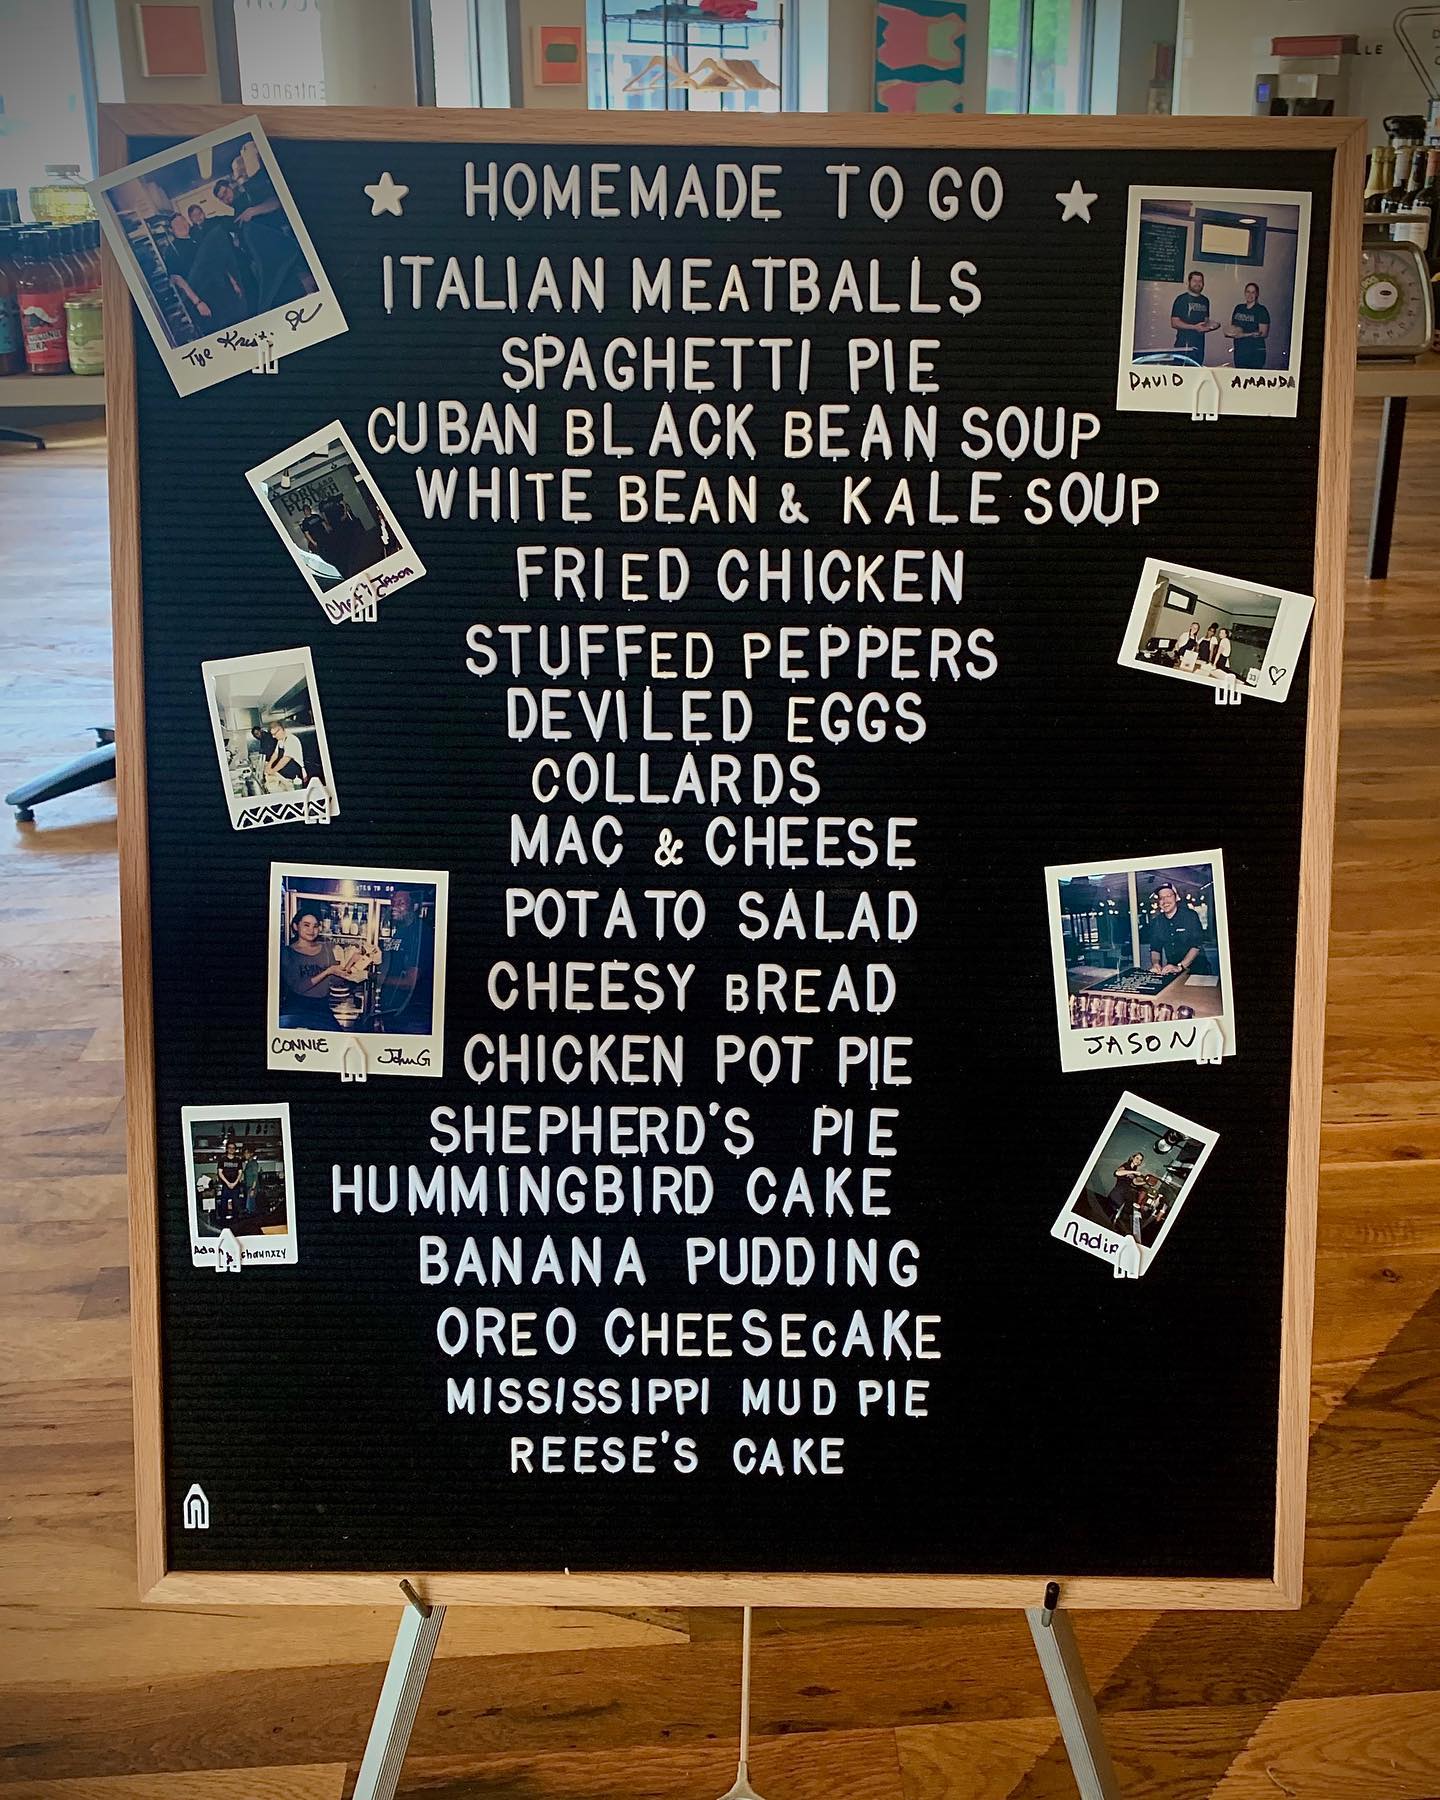 Entrance
★ HOMEMADE TO GO ★
ITALIAN MEATBALLS
SPAGHETTI PIE
CUBAN BLACK BEAN SOUP
WHITE BEAN & KALE SOUP
FRIED CHICKEN
STUFFED PEPPERS
DEVILED EGGS
COLLARDS
MAC & CHEESE
POTATO SALAD
CHEESY BREAD
CHICKEN POT PIE
SHEPHERD'S PIE
HUMMINGBIRD CAKE
BANANA PUDDING
OREO CHEESECAKE
MISSISSIPPI MUD PIE
REESE'S CAKE
Tye
DAVID AMANDA
FORK AND
PLOUGH
Jason
33
CONNIE JohnG
JASON